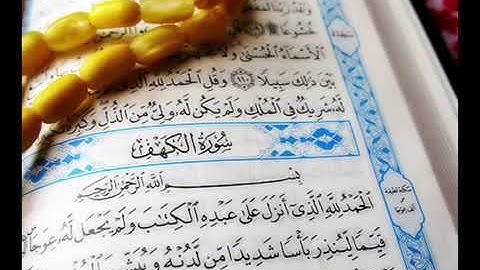 خُشُوعًا
الْأَسْمَاءُ الْحُسْنَىٰ وَلَا
بَيْنَ ذَٰلِكَ سَبِيلًا ١١٠ وَقُلِ الْحَمْدُ لِلَّهِ
لَّهُ شَرِيكٌ فِي الْمُلْكِ وَلَمْ يَكُن لَّهُ وَلِيٌّ مِّنَ الذُّلِّ وَكَبِّرْهُ
سُورَةُ الْكَهْفِ
بِسْمِ اللَّهِ الرَّحْمَٰنِ الرَّحِيمِ
الْحَمْدُ لِلَّهِ الَّذِي أَنزَلَ عَلَىٰ عَبْدِهِ الْكِتَٰبَ وَلَمْ يَجْعَل لَّهُ عِوَجَا
قَيِّمًا لِّيُنذِرَ بَأْسًا شَدِيدًا مِّن لَّدُنْهُ وَيُبَشِّرَ
سجدة